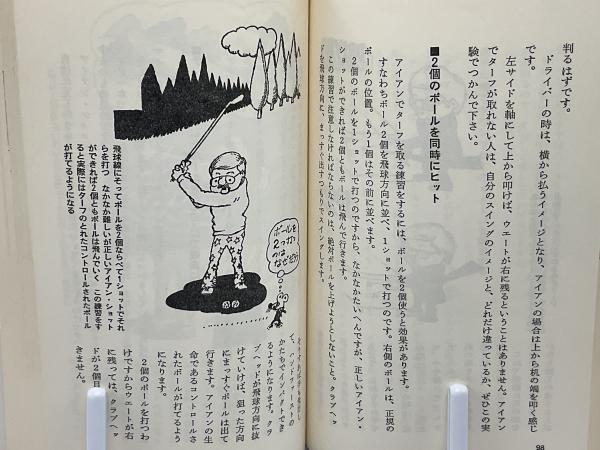 判るはずです。
ドライバーの時は、横から払うイメージとなり、アイアンの場合は上から杭の端を叩く感じ
です。
左サイドを軸にして上から叩けば、ウエートが右に残るということはありません。アイアン
でターフが取れない人は、自分のスイングのイメージと、どれだけ違っているか、ぜひこの実
験でつかんで下さい。
■2個のボールを同時にヒット
アイアンでターフを取る練習をするには、ボールを2個使うと効果があります。
すなわちボール2個を飛球方向に並べ、1ショットで打つのです。右側のボールは、正規の
ボールの位置。もう1個はその前に並べます。
2個のボールを1ショットで打つのですから、なかなかたいへんですが、正しいアイアン・
ショットができれば2個ともボールは飛んで行きます。
この練習で注意しなければならないのは、絶対ボールを上げようとしないこと。クラブヘッ
ドを飛球方向に、まっすぐ出すつもりでスイングします。
98
ボールを
2つ
なぐピだ
飛球線にそってボールを2個ならべて1ショットでそれ
らを打つ なかなか難しいが正しいアイアン・ショット
ができれば2個ともボールは飛んでいく この練習をす
ると実際にはターフのとれたコントロールされたボール
が打てるようになる
て、ハンドファーストの
かたちでインパクトでき
るようになります。クラ
ブヘッドが飛球方向に抜
けていけば、狙った方向
にまっすぐボールは出て
行きます。アイアンの生
命であるコントロールさ
れたボールが打てるよう
になります。
2個のボールを打つわ
けですからウエートが右
に残っては、クラブヘッ
ドが2個目
きません。